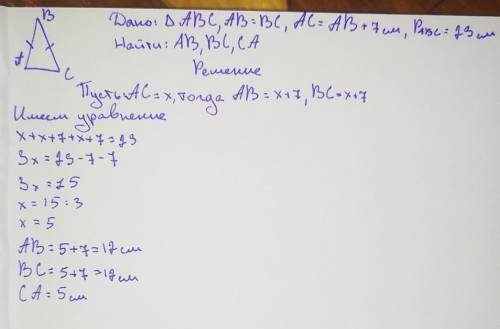 B
A
C
Дано: Δ ABC, AB = BC, AC = AB + 7 см, P ABC = 29 см
Найти: AB, BC, CA
Решение
Пусть AC = x, тогда AB = x+7, BC = x+7
Имеем уравнение
x+x+7+x+7=29
3x = 29-7-7
3x = 15
x = 15 : 3
x = 5
AB = 5+7 = 12 см
BC = 5+7 = 12 см
CA = 5 см